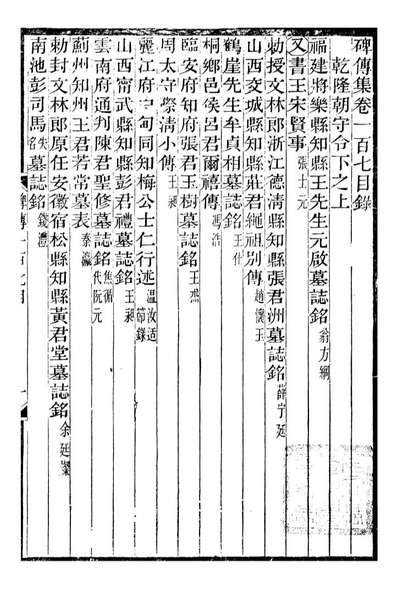 碑傳集卷一百七目錄
乾隆朝守令下之上
福建將樂縣知縣王先生元啟墓誌銘 翁方綱
又書王宋賢事 張士元
勅授文林郎浙江德清縣知縣張君洲墓誌銘 薛宁廷
山西交城縣知縣莊君繩祖別傳 趙懷玉
鶴崖先生牟貞相墓誌銘 王仕
桐鄉邑侯呂君爾禧傳 馮浩
臨安府知府張君玉樹墓誌銘 王杰
周太守際清小傳 王昶
麗江府中甸同知梅公士仁行述 溫汝适 節錄
山西甯武縣知縣彭君禮墓誌銘 王昶
雲南府通判陳君聖修墓誌銘 焦循 代阮元
薊州知州王君若常墓表 秦瀛
勅封文林郎原任安徽宿松縣知縣黃君堂墓誌銘 余廷粲
南池彭司馬 失名 墓誌銘 錢灃
碑傳一百七目